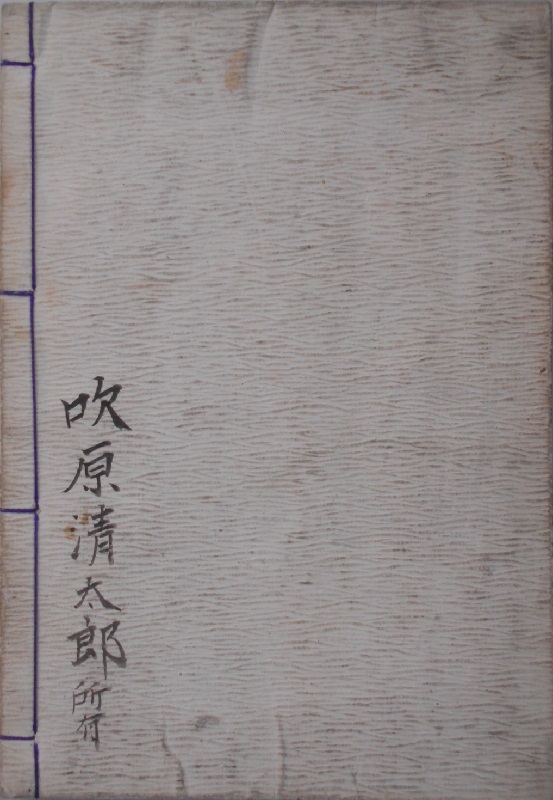 吹原清太郎所有